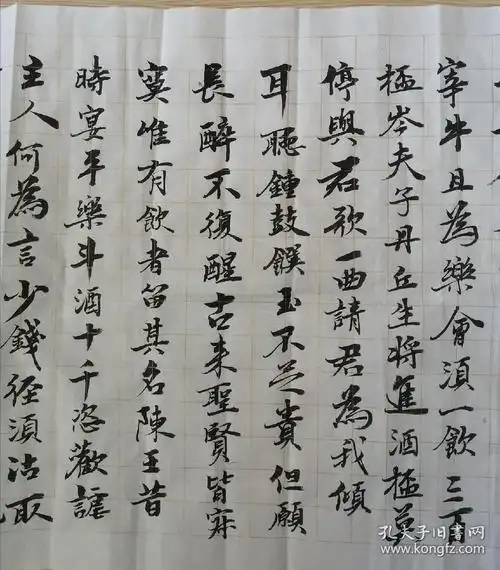 宰牛且為樂會須一飲三百
桮岑夫子丹丘生将進酒桮莫
停與君歌一曲請君為我傾
耳聽鍾鼓饌玉不足貴但願
長醉不復醒古来聖賢皆寂
寞惟有飲者留其名陳王昔
時宴平樂斗酒十千恣歡謔
主人何為言少錢径須沽取
孔夫子旧书网
www.kongfz.com